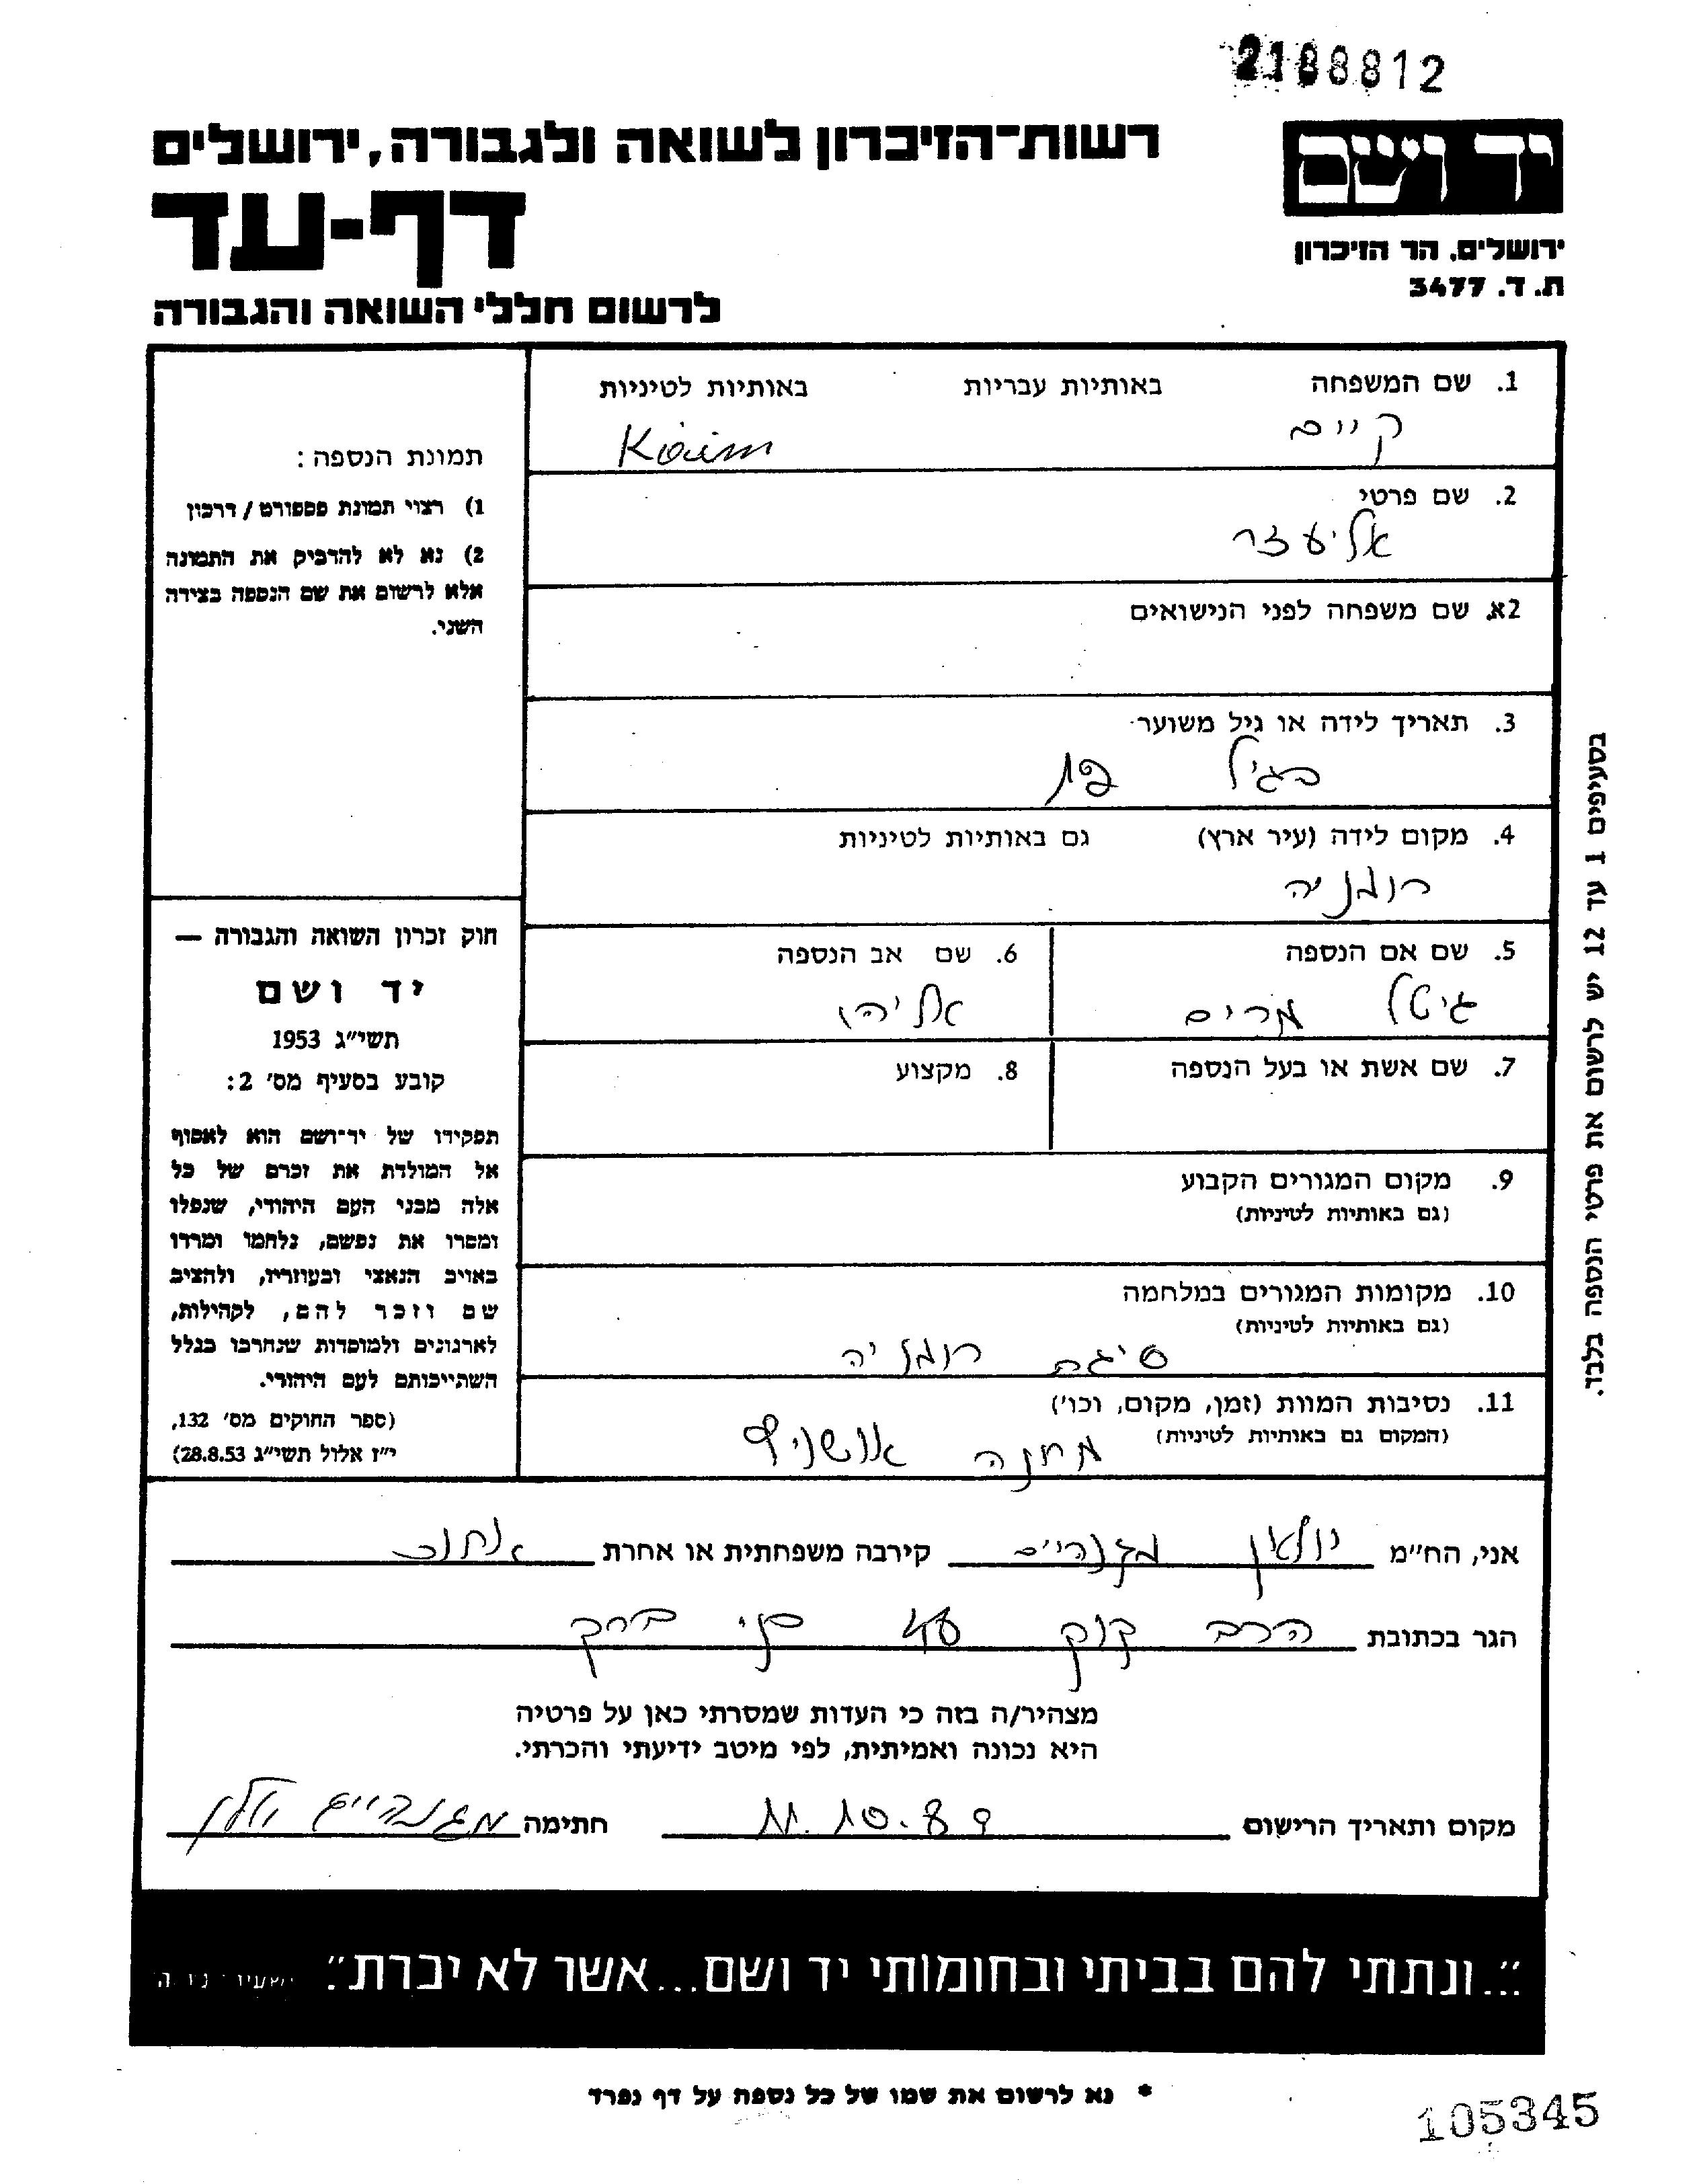 2188812
רשות־הזיכרון לשואה ולגבורה, ירושלים
יד ושם
דף-עד
ירושלים, הר הזיכרון
ת. ד. 3477
לרשום חללי השואה והגבורה
1. שם המשפחה באותיות עבריות באותיות לטיניות
קיים Kaim
2. שם פרטי
אליעזר
2א. שם משפחה לפני הנישואים
3. תאריך לידה או גיל משוער
בגיל
4. מקום לידה (עיר ארץ) גם באותיות לטיניות
רומניה
5. שם אם הנספה 6. שם אב הנספה
גיטל מרים אליהו
7. שם אשת או בעל הנספה 8. מקצוע
9. מקום המגורים הקבוע
(גם באותיות לטיניות)
10. מקומות המגורים במלחמה
(גם באותיות לטיניות)
סיגט רומניה
11. נסיבות המוות (זמן, מקום, וכו')
(המקום גם באותיות לטיניות)
מחנה אושויץ
תמונת הנספה:
1) רצוי תמונת פספורט / דרכון
2) נא לא להדביק את התמונה
אלא לרשום את שם הנספה בצידה
השני.
חוק זכרון השואה והגבורה —
יד ושם
תשי״ג 1953
קובע בסעיף מס' 2:
תפקידו של יד־ושם הוא לאסוף
אל המולדת את זכרם של כל
אלה מבני העם היהודי, שנפלו
ומסרו את נפשם, נלחמו ומרדו
באויב הנאצי ובעוזריו, ולהציב
שם וזכר להם, לקהילות,
לארגונים ולמוסדות שנחרבו בגלל
השתייכותם לעם היהודי.
(ספר החוקים מס' 132,
י״ז אלול תשי״ג 28.8.53)
בסעיפים 1 עד 12 יש לרשום את פרטי הנספה בלבד.
אני, הח״מ יולאן מגנהיים קירבה משפחתית או אחרת
הגר בכתובת הרב קוק 48 בני ברק
מצהיר/ה בזה כי העדות שמסרתי כאן על פרטיה
היא נכונה ואמיתית, לפי מיטב ידיעתי והכרתי.
מקום ותאריך הרישום 11.10.89 חתימה מגנהיים יולן
"...ונתתי להם בביתי ובחומותי יד ושם...אשר לא יכרת." ישעיהו נו ה
* נא לרשום את שמו של כל נספה על דף נפרד
105345